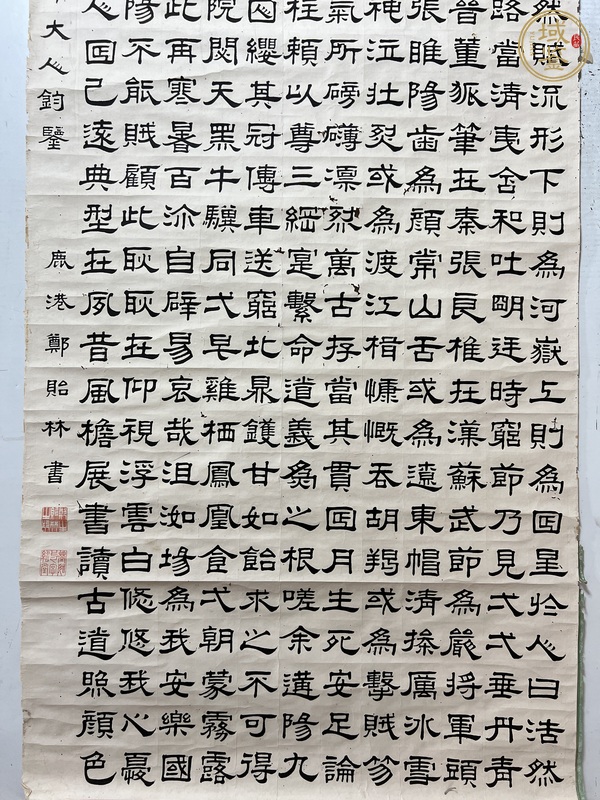 然賦流形下則為河嶽上則為囸星於人曰浩然
路當清夷含和吐明廷時窮節乃見弌弌垂丹青
晉董狐筆在秦張良椎在漢蘇武節為嚴將軍頭
張睢陽齒為顏常山舌或為遼東帽清操厲冰雪
神泣壯烈或為渡江楫慷慨吞胡羯或為擊賊笏
氣所磅礴凜烈萬古存當其貫囸月生死安足論
柱賴以尊三綱寔繫命道義為之根嗟余遘陽九
囚纓其冠傳車送窮北鼎鑊甘如飴求之不可得
院閟天黑牛驥同弌皁雞栖鳳凰食弌朝蒙霧露
此再寒暑百沴自辟易哀哉沮洳場為我安樂國
陽不能賊顧此耿耿在仰視浮雲白悠悠我心憂
人囸已遠典型在夙昔風檐展書讀古道照顏色
大人鈞鑒
鹿港鄭貽林書